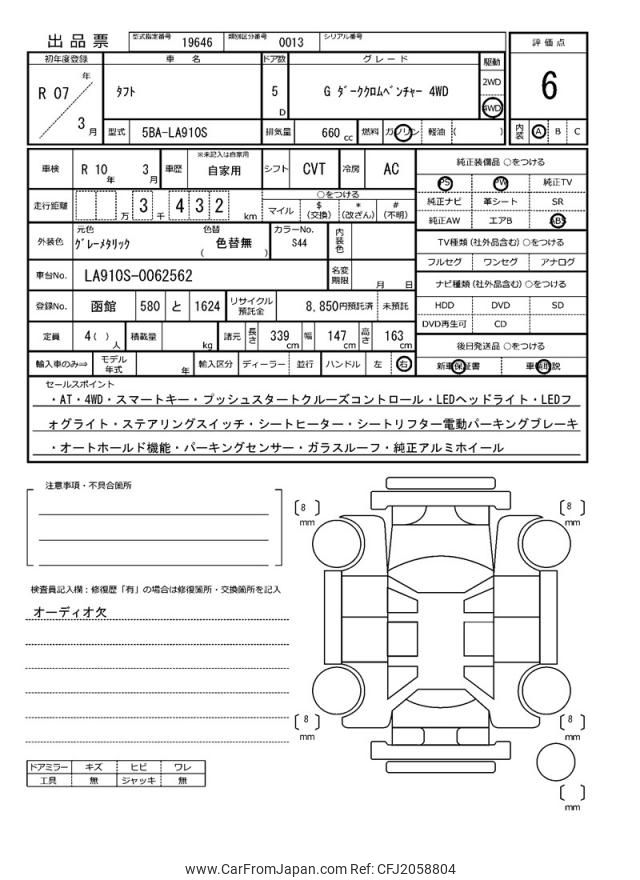 出品票 型式指定番号 19646 類別区分番号 0013 シリアル番号
評価点
6
内装 A B C
初年度登録 車名 ドア数 グレード 駆動
R 07 年 3 月
タフト 5 D G ダーククロムベンチャー 4WD
2WD
4WD
型式 5BA-LA910S 排気量 660 cc 燃料 ガソリン 軽油 ( )
車検 R 10 年 3 月 車歴 ※未記入は自家用 自家用 シフト CVT 冷房 AC
走行距離 万 3 千 4 3 2 km
○をつける
マイル $ (交換) * (改ざん) # (不明)
外装色 元色 グレーメタリック 色替 色替無 ( ) カラーNo. S44 内装色
車台No. LA910S-0062562 名変期限 月 日
登録No. 函館 580 と 1624 リサイクル預託金 8,850円預託済 未預託
定員 4 ( ) 人 積載量 kg 諸元 長さ 339 cm 幅 147 cm 高さ 163 cm
輸入車のみ⇒ モデル年式 年 輸入区分 ディーラー 並行 ハンドル 左 右
純正装備品 ○をつける
PS PW 純正TV
純正ナビ 革シート SR
純正AW エアB ABS
TV種類 (社外品含む) ○をつける
フルセグ ワンセグ アナログ
ナビ種類 (社外品含む) ○をつける
HDD DVD SD
DVD再生可 CD
後日発送品 ○をつける
新車保証書 車輌取説
セールスポイント
・AT・4WD・スマートキー・プッシュスタートクルーズコントロール・LEDヘッドライト・LEDフ
ォグライト・ステアリングスイッチ・シートヒーター・シートリフター電動パーキングブレーキ
・オートホールド機能・パーキングセンサー・ガラスルーフ・純正アルミホイール
注意事項・不具合箇所
検査員記入欄：修復歴「有」の場合は修復箇所・交換箇所を記入
オーディオ欠
ドアミラー キズ ヒビ ワレ
工具 無 ジャッキ 無
[ 8 ] mm
[ 8 ] mm
[ 8 ] mm
[ 8 ] mm
[ ] mm
www.CarFromJapan.com Ref: CFJ2058804